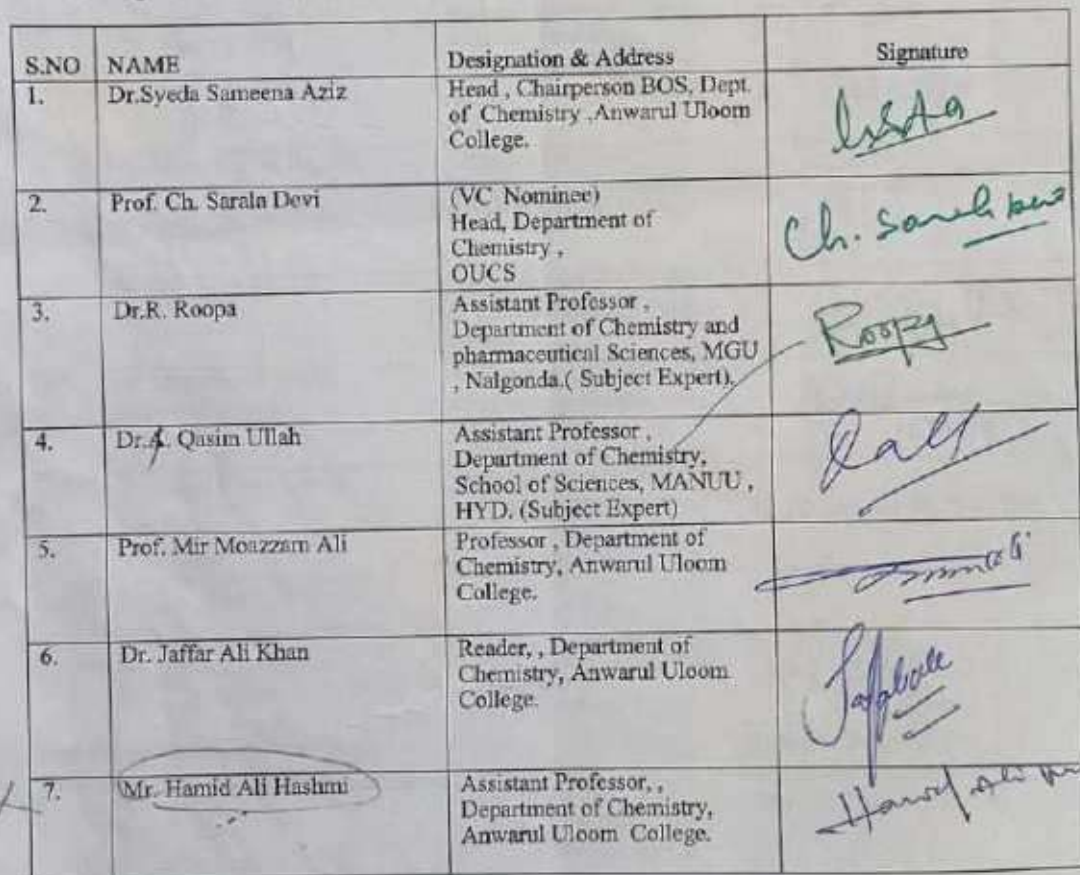 S.NO NAME Designation & Address Signature
1. Dr.Syeda Sameena Aziz Head , Chairperson BOS, Dept.
of Chemistry ,Anwarul Uloom
College.
2. Prof. Ch. Sarala Devi (VC Nominee)
Head, Department of
Chemistry ,
OUCS
Ch.
3. Dr.R. Roopa Assistant Professor ,
Department of Chemistry and
pharmaceutical Sciences, MGU
, Nalgonda.( Subject Expert).
Roopa
4. Dr. Qasim Ullah Assistant Professor ,
Department of Chemistry,
School of Sciences, MANUU ,
HYD. (Subject Expert)
5. Prof. Mir Moazzam Ali Professor , Department of
Chemistry, Anwarul Uloom
College.
6. Dr. Jaffar Ali Khan Reader, , Department of
Chemistry, Anwarul Uloom
College.
7. Mr. Hamid Ali Hashmi Assistant Professor, ,
Department of Chemistry,
Anwarul Uloom College.